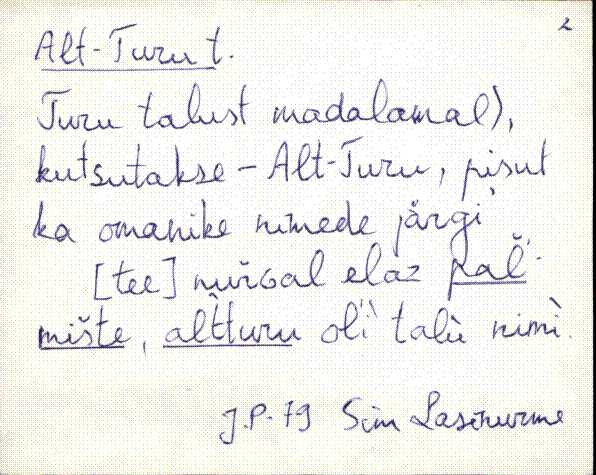 2
Alt-Turu t.
Turu talust madalamal),
kutsutakse – Alt-Turu, pisut
ka omanike nimede järgi
[tee] nuřgal elaz pall̆-
mište, altturu oli talu nimi.
J.P. 79 Siim